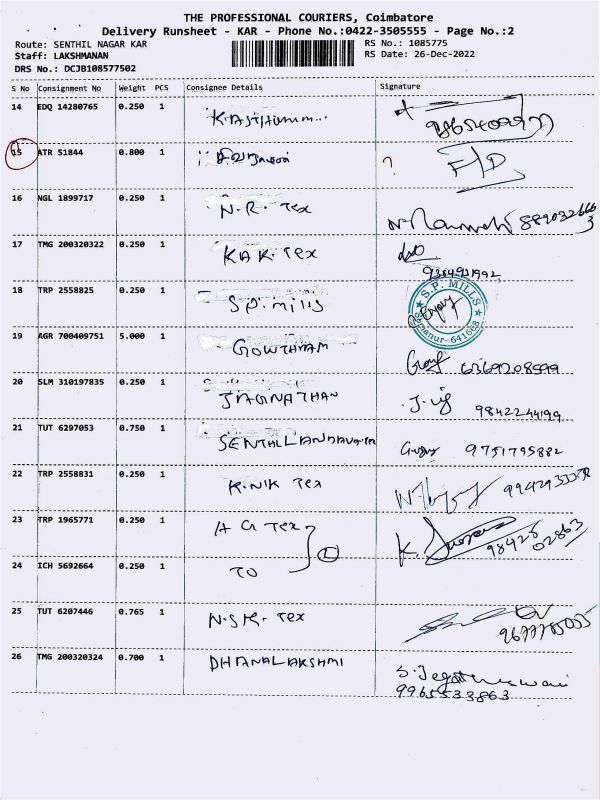 THE PROFESSIONAL COURIERS, Coimbatore
Delivery Runsheet - KAR - Phone No.:0422-3505555 - Page No.:2
Route: SENTHIL NAGAR KAR RS No.: 1085775
Staff: LAKSHMANAN RS Date: 26-Dec-2022
DRS No.: DCJB108577502
S No Consignment No Weight PCS Consignee Details Signature
14 EDQ 14280765 0.250 1
15 ATR 51844 0.800 1 ? F/D
16 NGL 1899717 0.250 1 N.R. Tex
17 TMG 200320322 0.250 1 KAK. Tex
18 TRP 2558825 0.250 1 S.P. mills S.P. MILLS 641668
19 AGR 700409751 5.000 1 GOWTHAM 6369208599
20 SLM 310197835 0.250 1 JAGNATHAN 9842244199
21 TUT 6297053 0.750 1 9751795882
22 TRP 2558831 0.250 1 K.NIK Tex
23 TRP 1965771 0.250 1 A G Tex 98428 02863
24 ICH 5692664 0.250 1 TO 2
25 TUT 6207446 0.765 1 N.S.K. Tex
26 TMG 200320324 0.700 1 DHANALAKSHMI
9965533863